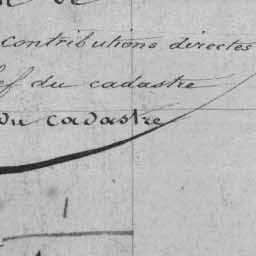 contributions directes
du cadastre
du cadastre